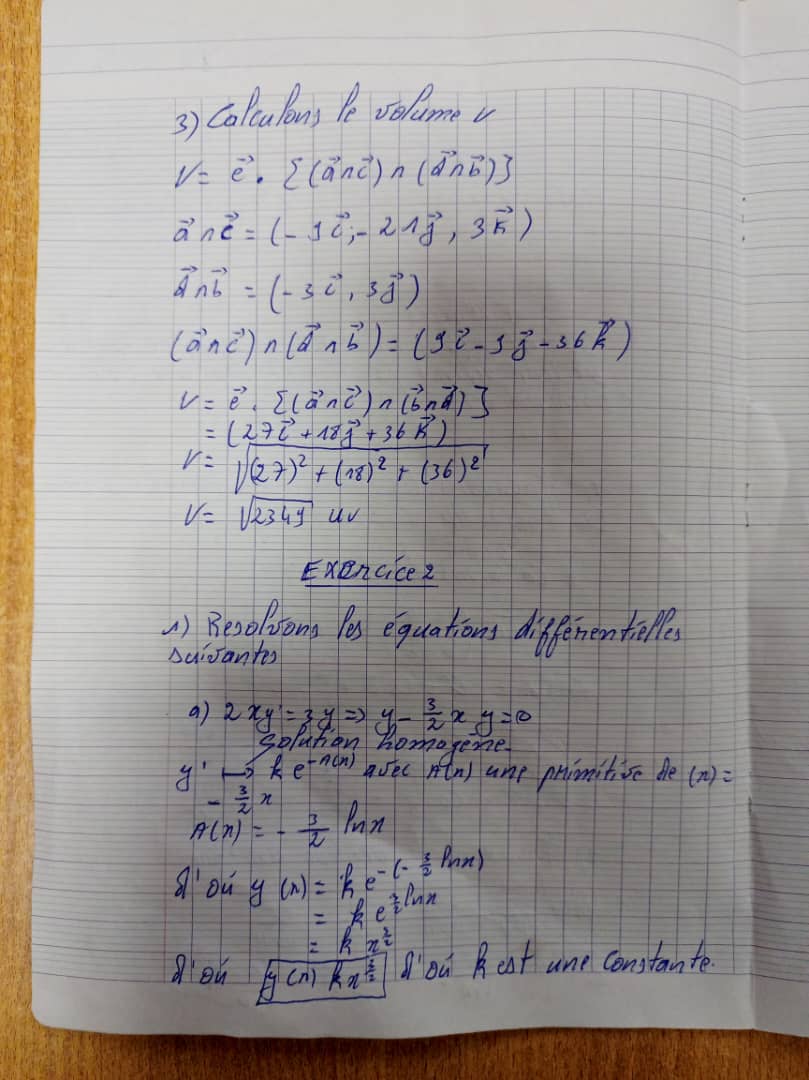 3) Calculons le volume v
V = e⃗ . [(a⃗ ∧ c⃗) ∧ (d⃗ ∧ b⃗)]
a⃗ ∧ c⃗ = (-9i⃗, -21j⃗, 3k⃗)
d⃗ ∧ b⃗ = (-3i⃗, 3j⃗)
(a⃗ ∧ c⃗) ∧ (d⃗ ∧ b⃗) = (9i⃗ - 9j⃗ - 36k⃗)
V = e⃗ . [(a⃗ ∧ c⃗) ∧ (b⃗ ∧ d⃗)]
= (27i⃗ + 18j⃗ + 36k⃗)
V = √((27)² + (18)² + (36)²)
V = √2349 uv
Exercice 2
1) Resolvons les équations différentielles
suivantes
a) 2xy' = 3y ⇒ y - 3/2 x y = 0
Solution homogène
y' ↦ k e^(-A(x)) avec A(x) une primitive de (x) =
- 3/2 x
A(x) = - 3/2 lnx
d'où y(x) = k e^(-(-3/2 lnx))
= k e^(3/2 lnx)
= k x^(3/2)
d'où y(x) k x^(3/2) d'où k est une constante.